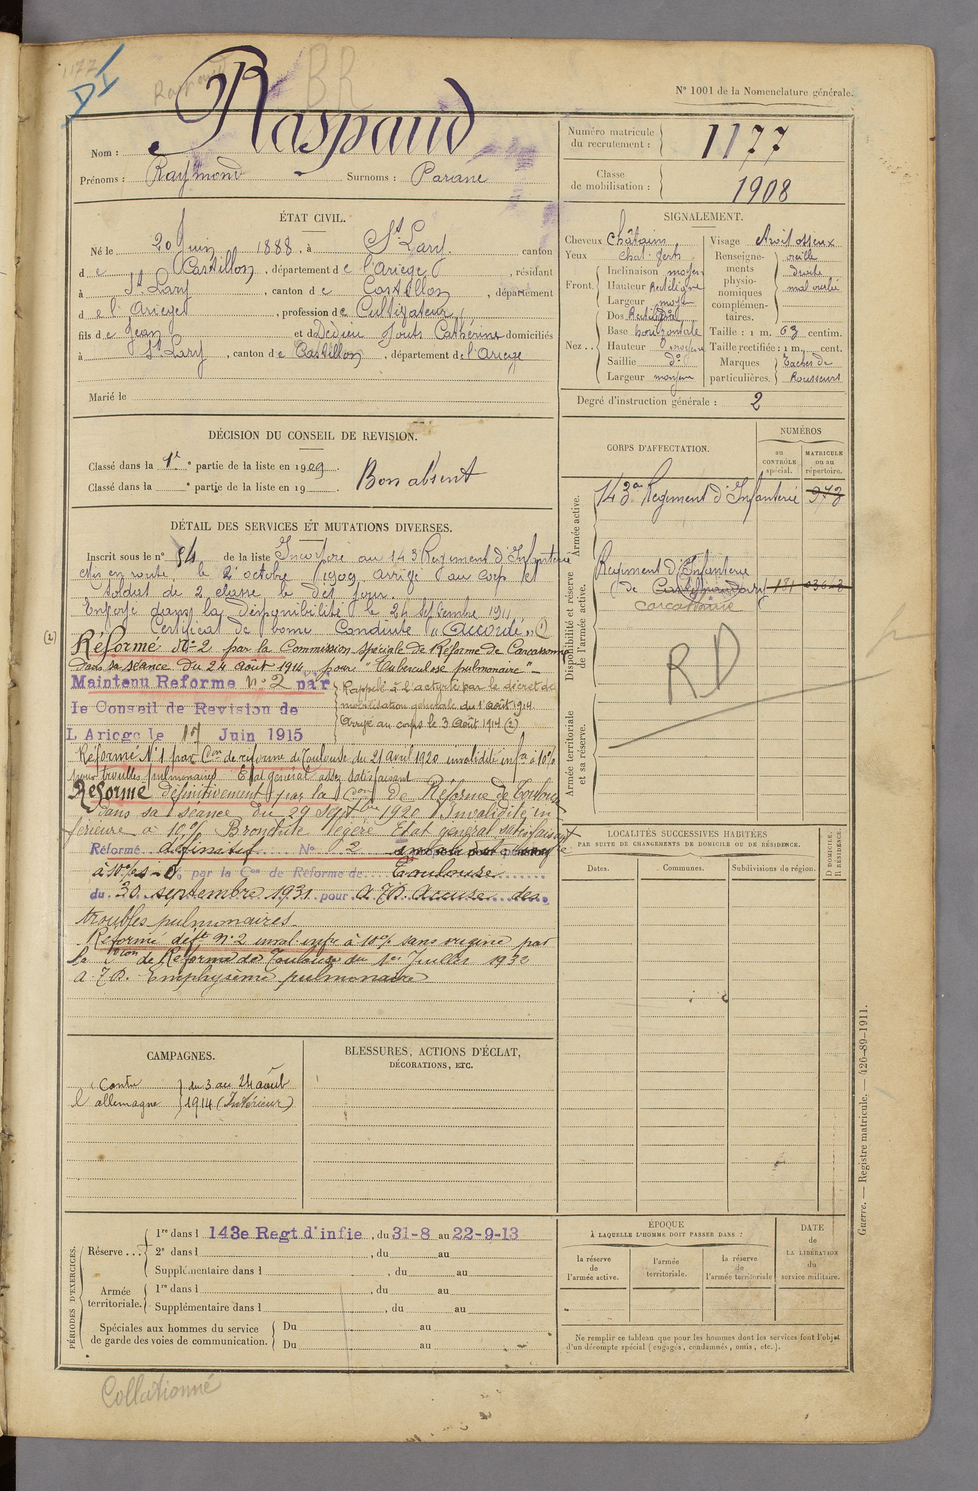 1177
BR
N° 1001 de la Nomenclature générale.
Nom : Raspaud
Prénoms : Raymond Surnoms : Parané
Numéro matricule du recrutement : 1177
Classe de mobilisation : 1908
ÉTAT CIVIL.
Né le 20 Juin 1888, à St Lary, canton
de Castillon, département de l'Ariège, résidant
à St Lary, canton de Castillon, département
de l'Ariège, profession de Cultivateur,
fils de Jean et de Dédieu Jouts Cathérine domiciliés
à St Lary, canton de Castillon, département de l'Ariège
Marié le
SIGNALEMENT.
Cheveux Châtains
Yeux chat. verts
Front. Inclinaison moyen
Hauteur Rectiligne
Largeur moyen
Nez. Dos Rectiligne
Base horizontale
Hauteur moyen
Saillie do
Largeur moyen
Visage étroit osseux
Renseignements physionomiques complémentaires. oreille droite mal ourlée
Taille : 1 m. 63 centim.
Taille rectifiée : 1 m. cent.
Marques particulières. Taches de Rousseurs
Degré d'instruction générale : 2
DÉCISION DU CONSEIL DE REVISION.
Classé dans la 1re partie de la liste en 1909. Bon absent
Classé dans la e partie de la liste en 19
DÉTAIL DES SERVICES ET MUTATIONS DIVERSES.
Inscrit sous le n° 54 de la liste Incorporé au 143 Regiment d'Infanterie
Mis en route le 2 octobre 1909, arrivé au corps et
soldat de 2 classe le dit jour.
Envoyé dans la disponibilité le 24 septembre 1911
Certificat de bonne Conduite "Accordé" (1)
(2) Réformé N° 2 par la Commission spéciale de Réforme de Carcassonne
dans sa séance du 24 août 1914 pour "Tuberculose pulmonaire" -
Maintenu Reforme n° 2 par
le Conseil de Revision de
L Ariege le 17 Juin 1915
Rappelé à l'activité par le décret de
mobilisation générale du 1 août 1914
Arrivé au corps le 3 Août 1914 (2)
Réformé N° 1 par Con de reforme de Toulouse du 21 avril 1920 invalidité infre à 10%
pour troubles pulmonaires. Etat général assez satisfaisant
Réformé définitivement par la Con de Réforme de Toulouse
dans sa séance du 29 Sept 1920 Invalidité in
férieure à 10% Bronchite légère Etat général satisfaisant
Réformé définitif N° 2
à 10% par la Con de Réforme de Toulouse
du 30 septembre 1931 pour A.P. Accuse des
troubles pulmonaires.
Reformé deft n° 2 inval. infre à 10% sans origine par
la Con de Reforme de Toulouse du 1er Juillet 1932
a. P. Emphysème pulmonaire
CORPS D'AFFECTATION.
NUMÉROS
au CONTRÔLE spécial.
MATRICULE ou au répertoire.
Armée active.
143e Regiment d'Infanterie
Disponibilité et réserve de l'armée active.
Regiment d'Infanterie
de Castelnaudary 181
Carcassonne
RD
Armée territoriale et sa réserve.
LOCALITÉS SUCCESSIVES HABITÉES
PAR SUITE DE CHANGEMENTS DE DOMICILE OU DE RÉSIDENCE.
Dates. Communes. Subdivisions de région.
D. DOMICILE. R. RÉSIDENCE.
CAMPAGNES.
Contre l'allemagne du 3 au 24 août 1914 (Intérieur)
BLESSURES, ACTIONS D'ÉCLAT,
DÉCORATIONS, ETC.
PÉRIODES D'EXERCICES.
Réserve... 1re dans l 143e Regt d'infie, du 31-8 au 22-9-13
2e dans l , du au
Supplémentaire dans l , du au
Armée territoriale. 1re dans l , du au
Supplémentaire dans l , du au
Spéciales aux hommes du service de garde des voies de communication. Du au
Du au
ÉPOQUE
À LAQUELLE L'HOMME DOIT PASSER DANS :
la réserve de l'armée active.
l'armée territoriale.
la réserve de l'armée territoriale
DATE de LA LIBÉRATION du service militaire.
Ne remplir ce tableau que pour les hommes dont les services font l'objet
d'un décompte spécial (engagés, condamnés, omis, etc.).
Guerre. — Registre matricule. — 426-89-1911.
Collationné